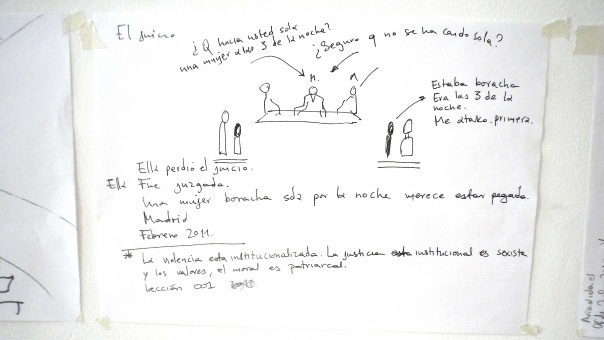 El juicio
¿Q hacia usted sola
una mujer a las 3 de la noche?
¿Seguro q no se ha caido sola?
H.
M.
Estaba boracha
Era las 3 de la
noche.
Me atako primera.
Ella perdió el juicio.
Ella Fue juzgada.
Una mujer boracha sola por la noche merece estar pegada.
Madrid
Febrero 2011.
* La violencia esta institucionalizada. La justicia esta institucional es sexista
y los valores, el moral es patriarcal.
Lección 001